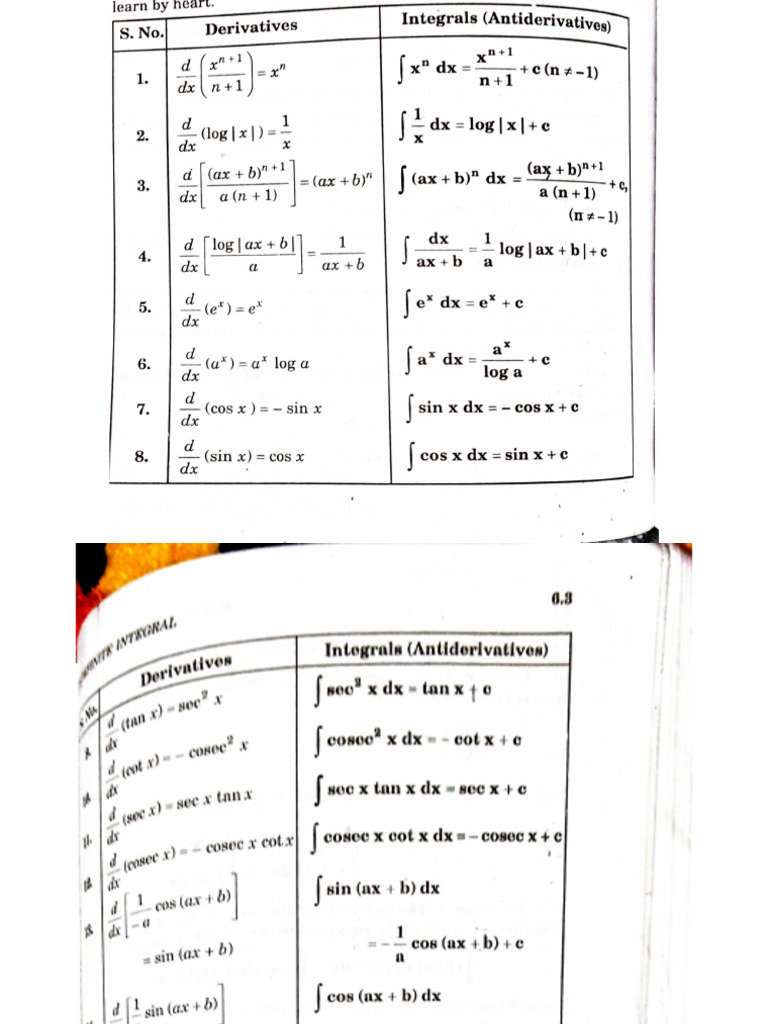 learn by heart.
S. No. Derivatives Integrals (Antiderivatives)
1. d/dx (x^(n+1)/(n+1)) = x^n ∫ x^n dx = x^(n+1)/(n+1) + c (n ≠ −1)
2. d/dx (log | x |) = 1/x ∫ 1/x dx = log | x | + c
3. d/dx [(ax + b)^(n+1)/(a (n + 1))] = (ax + b)^n ∫ (ax + b)^n dx = (ax + b)^(n+1)/(a (n + 1)) + c,
(n ≠ −1)
4. d/dx [log | ax + b |/a] = 1/(ax + b) ∫ dx/(ax + b) = 1/a log | ax + b | + c
5. d/dx (e^x) = e^x ∫ e^x dx = e^x + c
6. d/dx (a^x) = a^x log a ∫ a^x dx = a^x/(log a) + c
7. d/dx (cos x ) = − sin x ∫ sin x dx = − cos x + c
8. d/dx (sin x) = cos x ∫ cos x dx = sin x + c
6.3
INTEGRAL
No. Derivatives Integrals (Antiderivatives)
9. d/dx (tan x) = sec² x ∫ sec² x dx = tan x + c
10. d/dx (cot x) = − cosec² x ∫ cosec² x dx = − cot x + c
11. d/dx (sec x) = sec x tan x ∫ sec x tan x dx = sec x + c
12. d/dx (cosec x) = − cosec x cot x ∫ cosec x cot x dx = − cosec x + c
13. d/dx [1/−a cos (ax + b)] ∫ sin (ax + b) dx
= sin (ax + b) = − 1/a cos (ax + b) + c
d [1 sin (ax + b)] ∫ cos (ax + b) dx